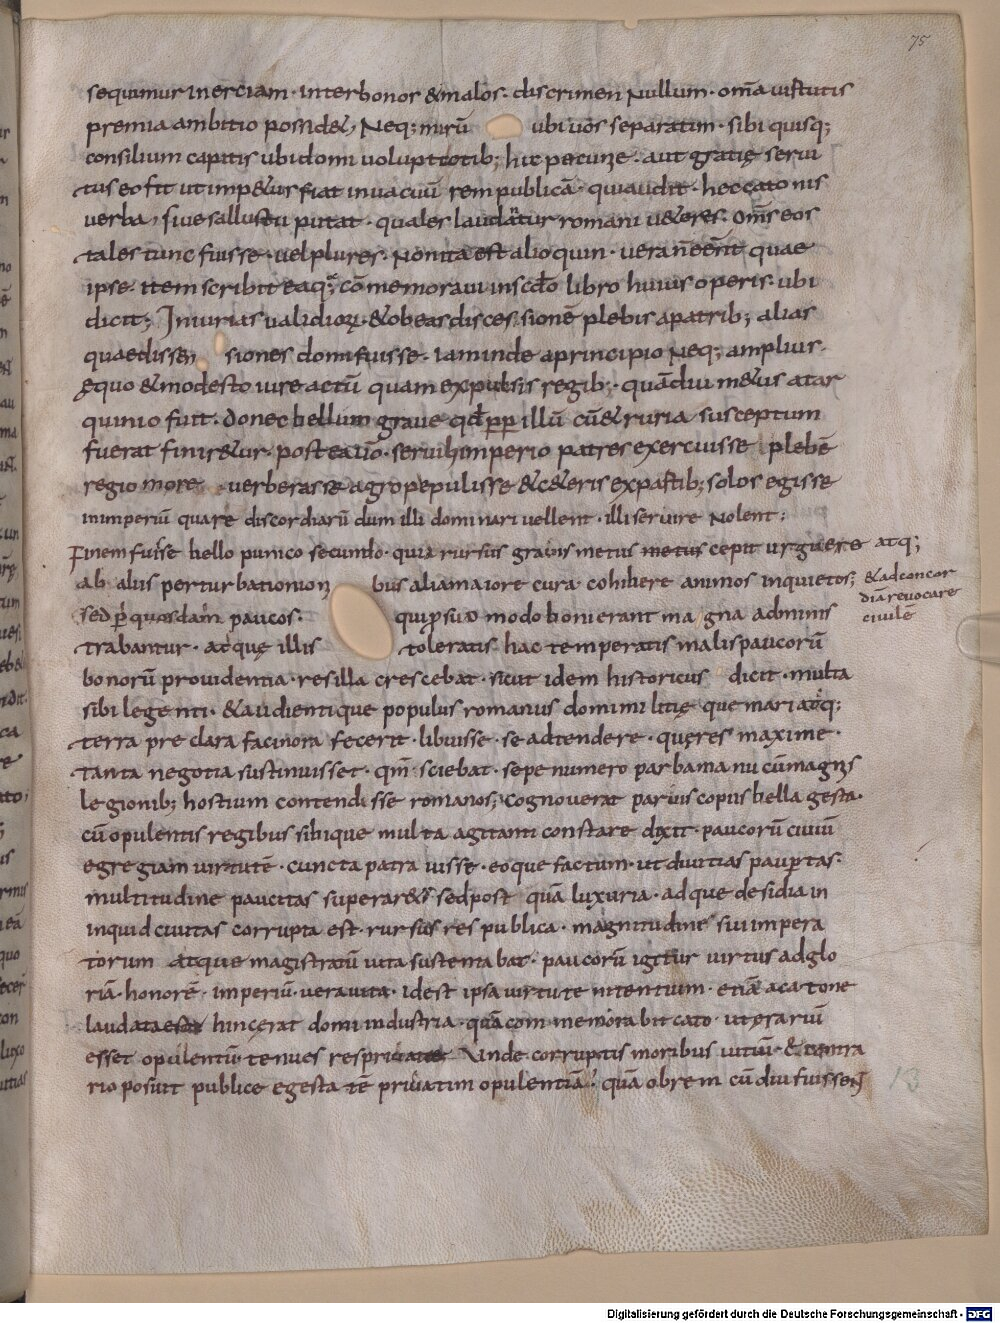 75
sequimur inerciam · inter bonos & malos · discrimen Nullum · om̄a uirtutis
premia ambitio possid&, Neq; mirū ubi uos separatim · sibi quisq;
consilium capitis ubi domi uoluptatib; hic pecunie · aut gratię serui
tus eo fit ut imp&us fiat in uacuū rem publicā · qui audit · hec catonis
uerba, siue sallustii putat · quales laudātur romani u&eres · om̄s eos
tales tunc fuisse · uel plures · Non ita est alioquin · uera n̄ eēnt quae
ipse item scribit eaq; cōmemoraui in scd̄o libro huius operis · ubi
dicit; Iniurias ualidiorꝝ & ob eas discessionē plebis a patrib; alias
quae dissen siones domi fuisse · iam inde a principio Neq; amplius ·
ęquo & modesto iure actū quam expulsis regib; · quādiu m&us a tar
quinio fuit · donec bellum graue qd̄ pp illū cū &ruria susceptum
fuerat finir&ur · postea uō · seruili imperio patres exercuisse plebē
regio more · uerberasse agro pepulisse & c&eris expartib; solos egisse
in imperiū quare discordiarū dum illi dominari uellent · illi seruire Nolent;
Finem fuisse bello punico secundo · quia rursus grauis metus metus cepit urguere atq;
ab aliis perturbationion bus alia maiore cura cohibere animos inquietos; & ad concor
diā reuocare
ciuilē
sed p̄ quosdam paucos · qui p suo modo boni erant magna adminis
trabantur · atque illis toleratis hac temperatis malis paucorū
bonorū prouidentia · res illa crescebat · sicut idem historicus dicit · multa
sibi legenti · & audienti que populus romanus domi militię que mari atq;
terra preclara facinora fecerit · libuisse · se adtendere · que res maxime ·
tanta negotia sustinuisset · qm̄ sciebat · sepe numero parba manu cū magnis
legionib; hostium contendisse romanos; cognouerat paruis copiis bella gesta ·
cū opulentis regibus sibique multa agitanti constare dixit · paucorū ciuiū
egregiam uirtutē · cuncta patrauisse · eoque factum · ut diuitias paupertas ·
multitudine paucitas superar& sed post quā luxuria · adque desidia in
inquid ciuitas corrupta est · rursus res publica · magnitudine sui impera
torum atque magistratū uita sustentabat · paucorū igitur uirtus ad glo
riā · honorē · imperiū · uera uita · id est ipsa uirtute nitentium · etiā a catone
laudata est hinc erat domi industria · quā commemorabit cato · ut ęrariū
esset opulentū tenues res priuatae Unde corruptis moribus uitiū · & contra
rio posuit publice egestatē priuatim opulentiā; quā obrem cū diu fuissent
13
Digitalisierung gefördert durch die Deutsche Forschungsgemeinschaft - DFG